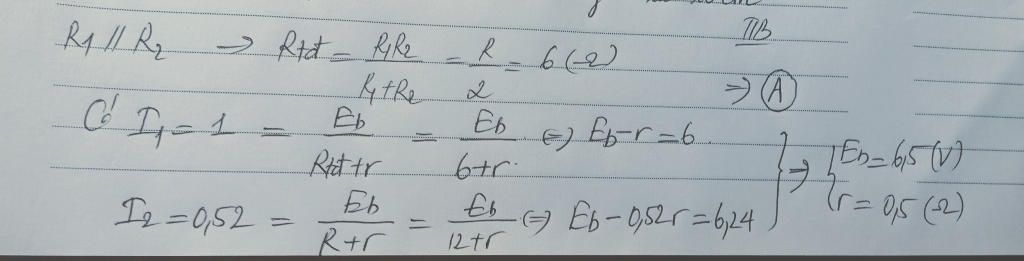 R1 // R2 → Rtđ = R1R2 / R1+R2 = R / 2 = 6 (Ω)
⇒ A
Có I1 = 1 = Eb / Rtđ+r = Eb / 6+r ⇔ Eb - r = 6
I2 = 0,52 = Eb / R+r = Eb / 12+r ⇔ Eb - 0,52r = 6,24
⇒ { Eb = 6,5 (V)
r = 0,5 (Ω)